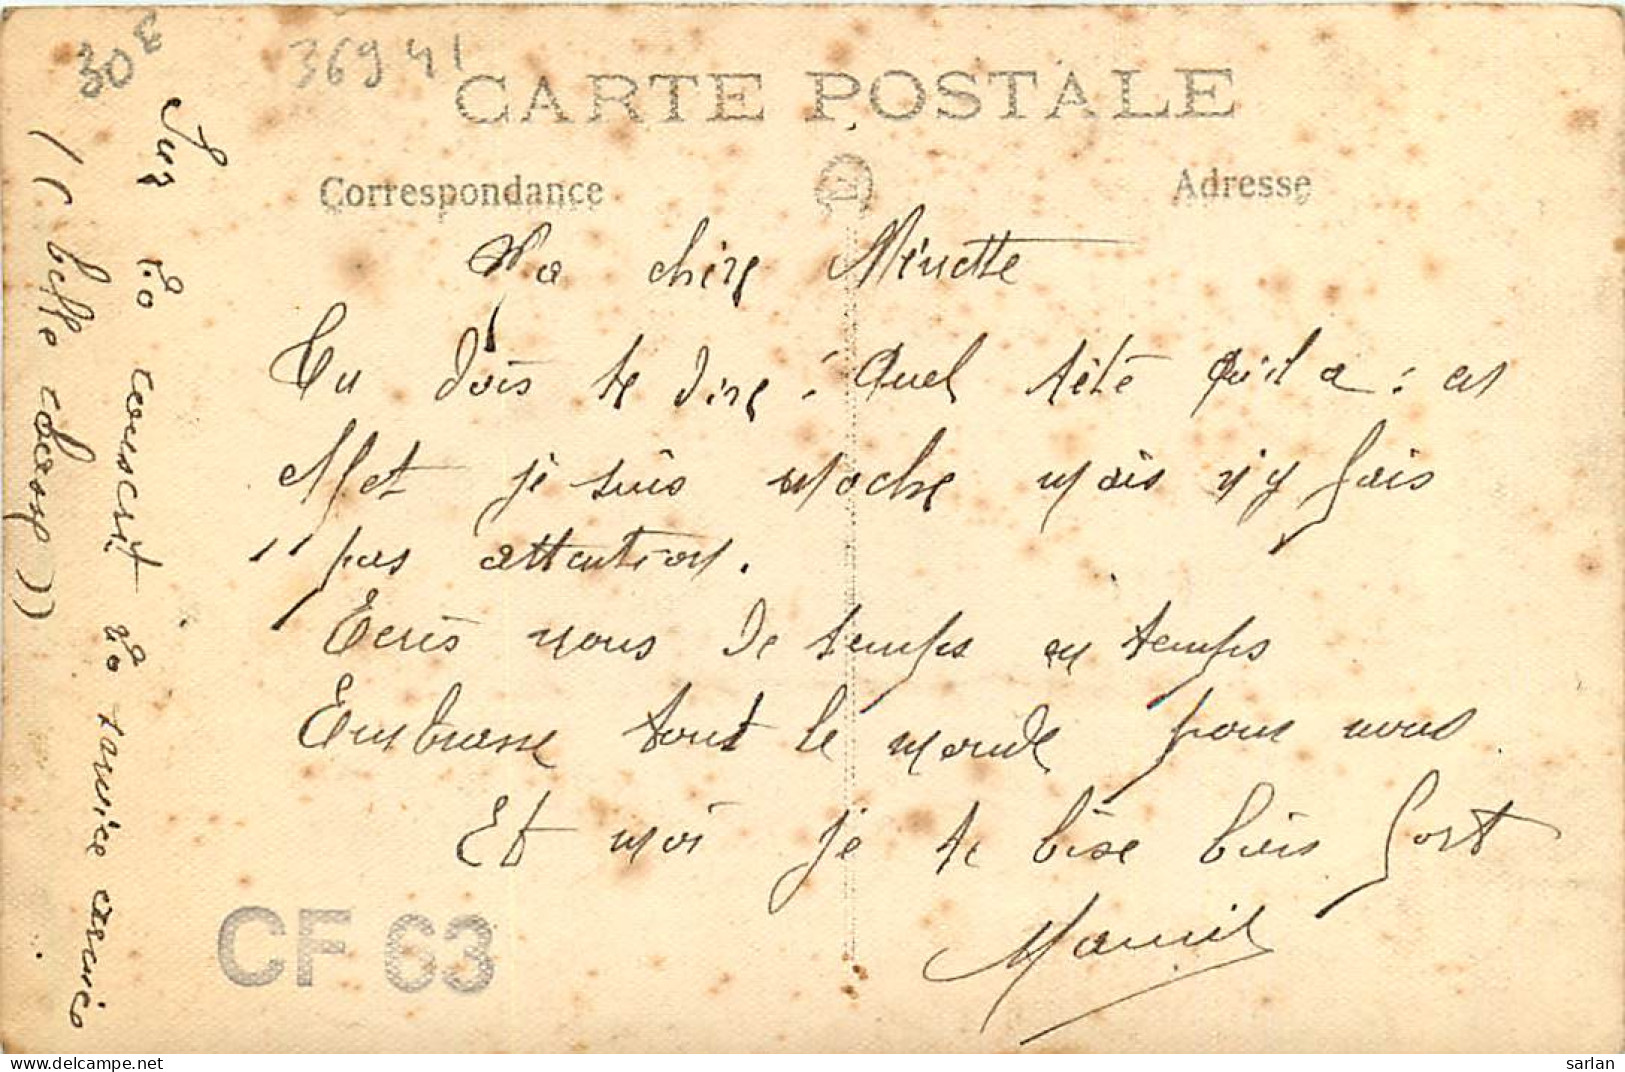 30€
36941
CARTE POSTALE
Correspondance
Adresse
Ma chère Ninette
Tu dois te dire : Quel tête qu'il a : as
Met je suis moche mais n'y fais
pas attention.
Ecris nous de temps en temps
Embrasse tout le monde pour nous.
Et moi je te bise bien fort
CF 63
Sur
conscrit
année
(( belle classe ))
sarlan